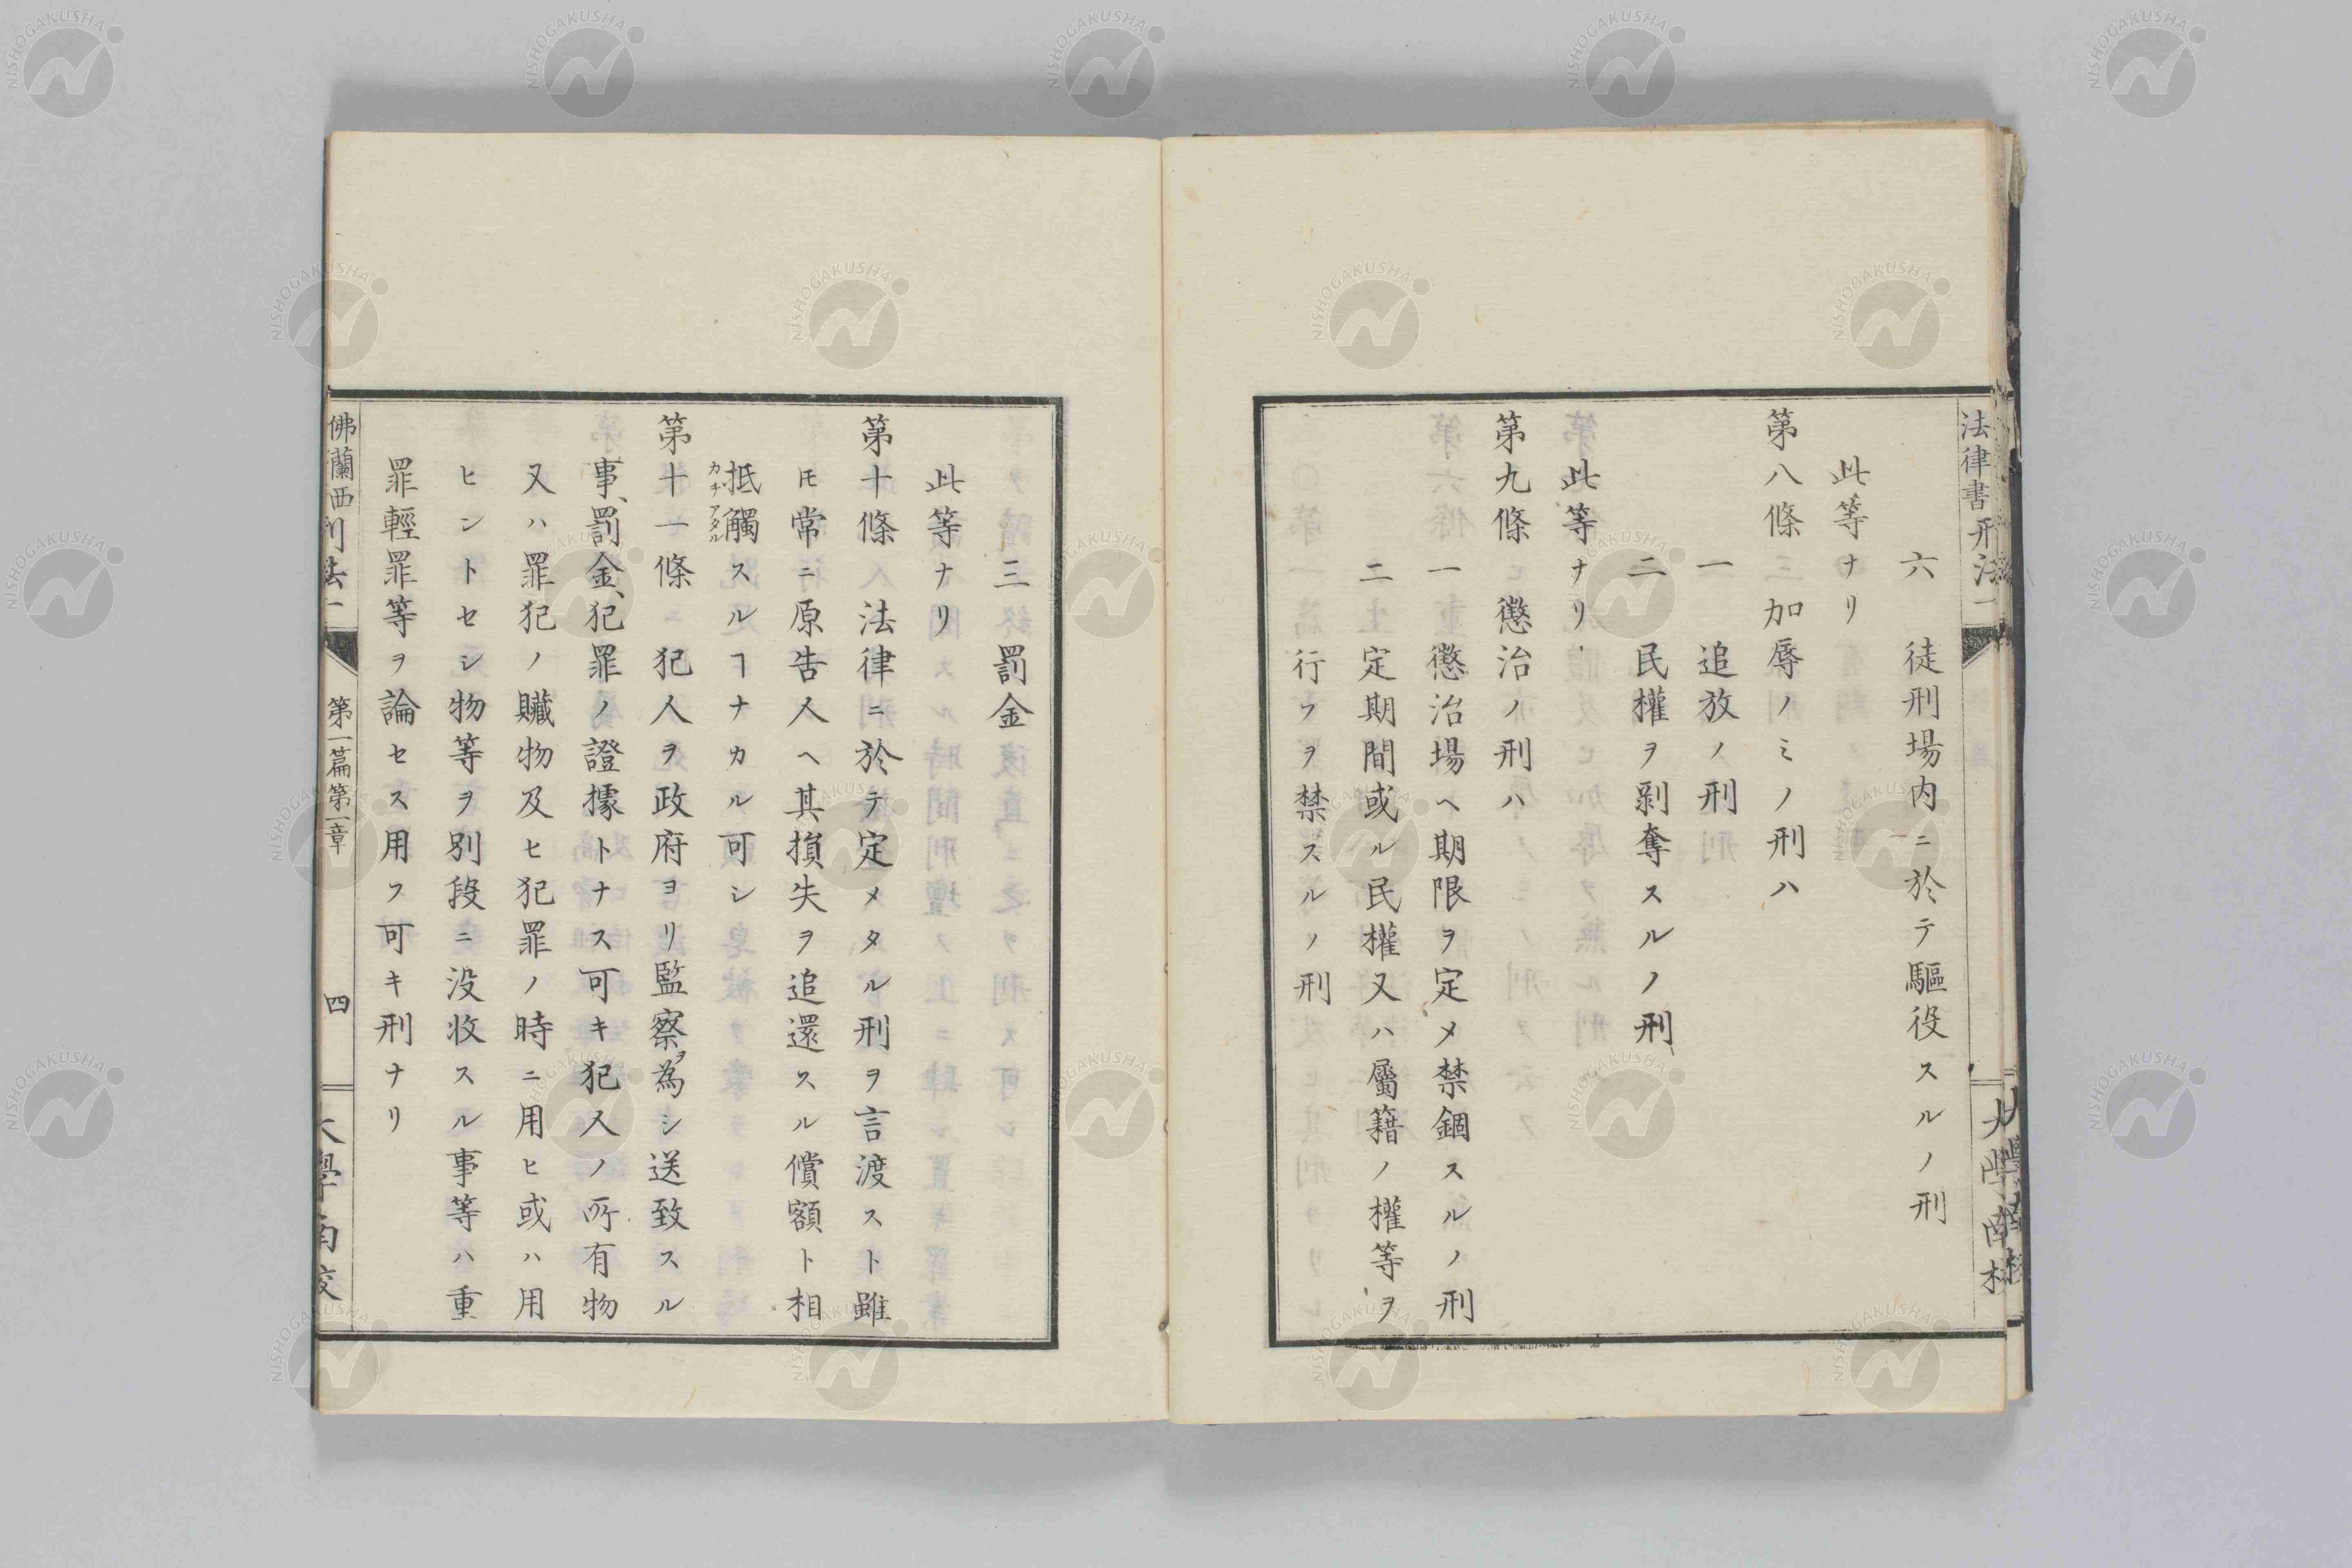 法律書 刑法一
六 徒刑場内ニ於テ驅役スルノ刑
此等ナリ
第八條 加辱ノミノ刑ハ
一 追放ノ刑
二 民權ヲ剥奪スルノ刑
此等ナリ
第九條 懲治ノ刑ハ
一 懲治場ヘ期限ヲ定メ禁錮スルノ刑
二 定期間或ル民權又ハ屬籍ノ權等ヲ
行フヲ禁スルノ刑
大學南校
三 罰金
此等ナリ
第十條 法律ニ於テ定メタル刑ヲ言渡スト雖
モ常ニ原告人ヘ其損失ヲ追還スル償額ト相
抵觸スルヿナカル可シ
カチアタル
第十一條 犯人ヲ政府ヨリ監察ヲ為シ送致スル
事、罰金、犯罪ノ證據トナス可キ犯人ノ所有物
又ハ罪犯ノ贓物及ヒ犯罪ノ時ニ用ヒ或ハ用
ヒントセシ物等ヲ別段ニ没收スル事等ハ重
罪輕罪等ヲ論セス用フ可キ刑ナリ
佛蘭西刑法一 第一篇第一章 四 大學南校
NISHOGAKUSHA